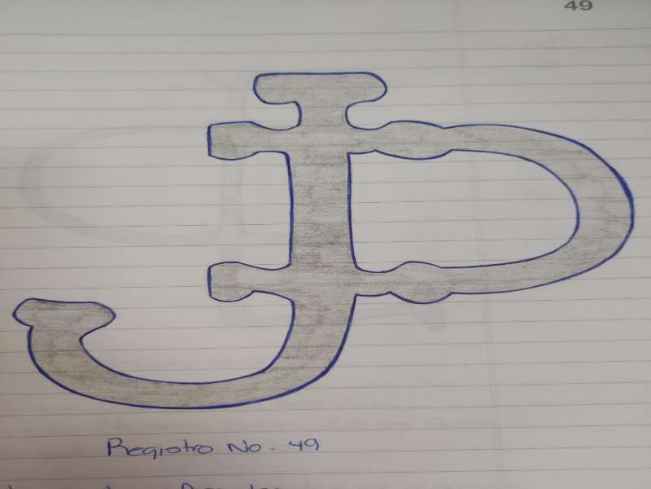 49
Registro No. 49